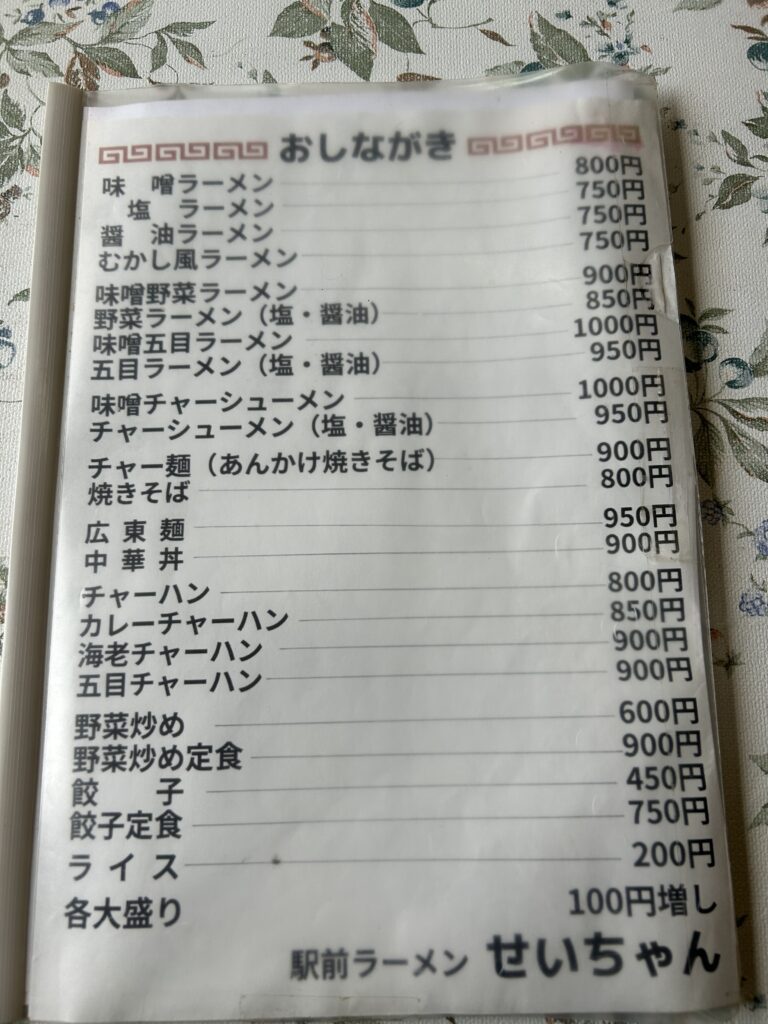 おしながき
味　噌ラーメン 800円
塩　ラーメン 750円
醤　油ラーメン 750円
むかし風ラーメン 750円
味噌野菜ラーメン 900円
野菜ラーメン（塩・醤油） 850円
味噌五目ラーメン 1000円
五目ラーメン（塩・醤油） 950円
味噌チャーシューメン 1000円
チャーシューメン（塩・醤油） 950円
チャー麺（あんかけ焼きそば） 900円
焼きそば 800円
広東麺 950円
中華丼 900円
チャーハン 800円
カレーチャーハン 850円
海老チャーハン 900円
五目チャーハン 900円
野菜炒め 600円
野菜炒め定食 900円
餃　子 450円
餃子定食 750円
ライス 200円
各大盛り 100円増し
駅前ラーメン せいちゃん